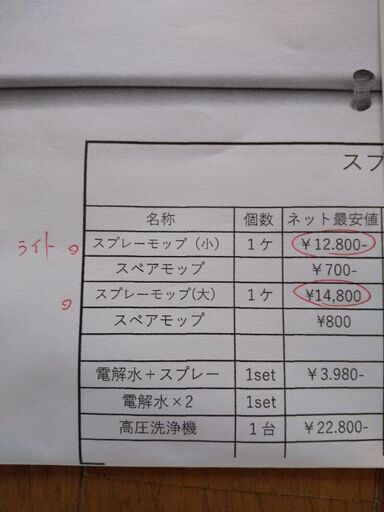 スプ
名称 個数 ネット最安値
ライト スプレーモップ（小） 1ケ ￥12.800-
スペアモップ ￥700-
スプレーモップ(大) 1ケ ¥14,800
スペアモップ ¥800
電解水＋スプレー 1set ￥3.980-
電解水×2 1set
高圧洗浄機 1台 ￥22.800-